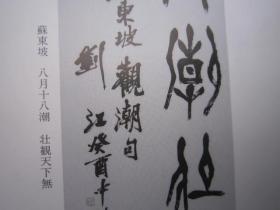 潮壯
東坡觀潮句
劉江癸酉十
蘇東坡 八月十八潮 壯觀天下無